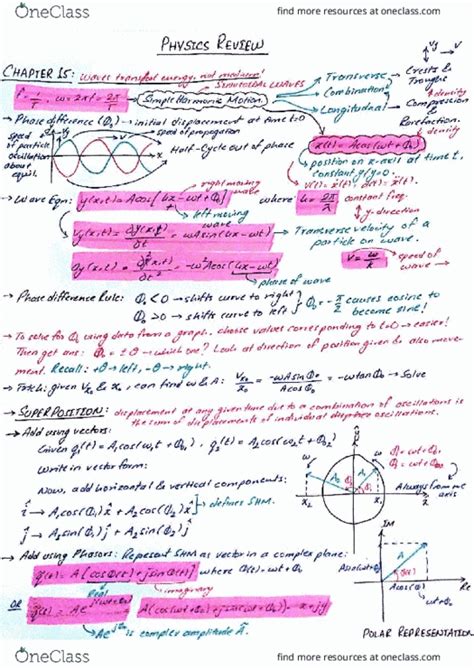 OneClass
find more resources at oneclass.com
PHYSICS REVIEW
CHAPTER 15: waves transfer energy, not medium!
SINUSOIDAL WAVES
f = 1/T, ω = 2πf = 2π/T
Simple Harmonic Motion
Transverse
Combination
Longitudinal
Crests & Troughs
density
Compression & Rarefaction.
density
→ Phase difference (Φ₀) → initial displacement at time t=0
speed of particle oscillation about equil.
speed of propagation
Half-Cycle out of phase
x(t) = Acos(ωt+Φ₀)
→ position on x-axis at time t,
constant y/y=0.
→ Wave Eqn: y(x,t) = Acos[kx - ωt + Φ₀]
right moving wave
left moving wave
where k = 2π/λ
constant freq.
y-direction
Transverse velocity of a particle on wave.
phase of wave
v = ω/k
speed of wave
→ Phase difference Rule: Φ₀ < 0 → shifts curve to right
Φ₀ > 0 → shifts curve to left
Φ₀ = -π/2 causes cosine to become sine!
→ To solve for Φ₀ using data from a graph, choose values corresponding to t=0 → easier!
Then get ans: Φ₀ = ± θ → which one? Look at direction of position given & also movement.
Recall: +θ → left, -θ → right.
→ Trick: given V₀ & x₀, can find ω & A: = -ωAsinΦ₀/AcosΦ₀ = -ωtanΦ₀ → Solve
→ SUPERPOSITION: displacement at any given time due to a combination of oscillations is
the sum of displacements of individual oscillations.
→ Add using vectors:
Given y₁(t) = A₁cos(ω₁t+Φ₀₁), y₂(t) = A₂cos(ωt+Φ₀₂)
Write in vector form:
Now, add horizontal & vertical components:
î → A₁cos(Φ₁)x̂ + A₂cos(Φ₂)x̂
ĵ → A₁sin(Φ₁) + A₂sin(Φ₂)
defines SHM
Always from +ve axis
→ Add using Phasors: Represent SHM as vector in a complex plane:
ỹ(t) = A[cosΦ(t) + jsinΦ(t)] where Φ(t) = ωt+Φ₀
Real
imaginary
OR
A(cos(ωt+Φ₀) + jsin(ωt+Φ₀)) = x + jy
is complex amplitude Ã.
IM
A
Re
POLAR REPRESENTATION
OneClass
find more resources at oneclass.com